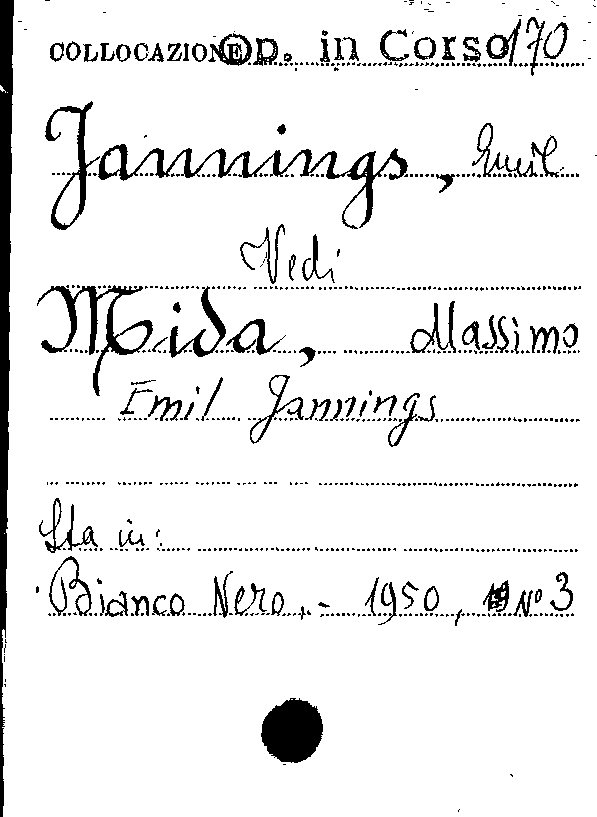 COLLOCAZIONE Op. in Corso 170
Jannings, Emil
Vedi
Mida, Massimo
Emil Jannings
Sta in:
Bianco Nero,.- 1950, N° 3